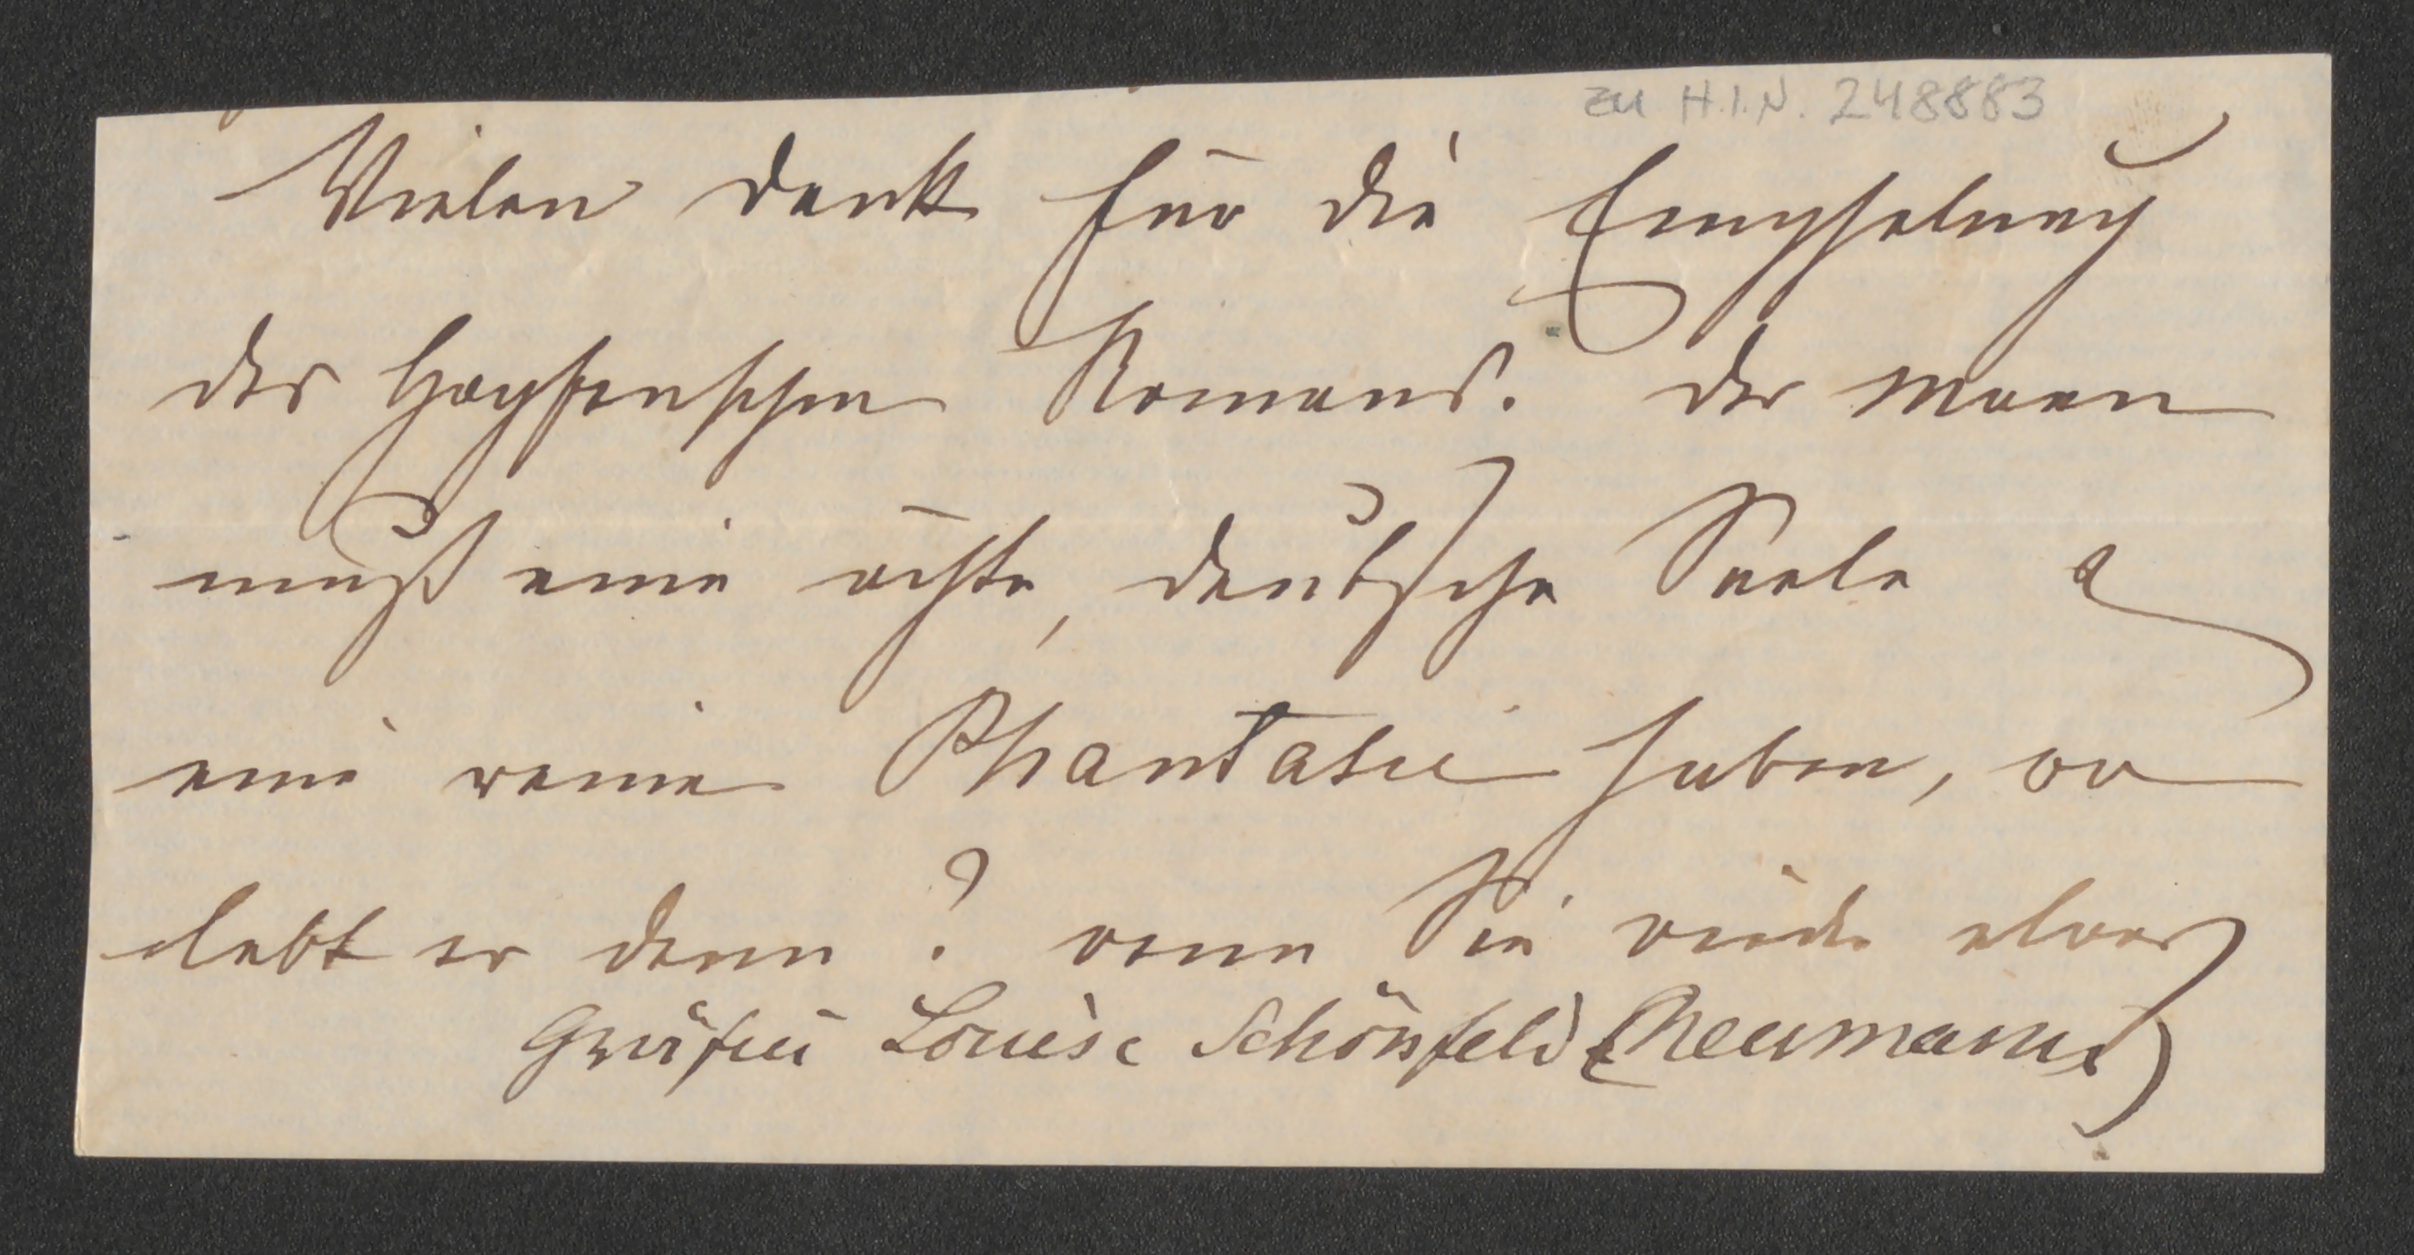 zu H.I.N. 248883
Vielen Dank für die Empfelung
des Hopfenschen Romans. Der Mann
muß eine ächte, deutsche Seele &
eine reine Phantasie haben, wo
lebt er denn? wenn Sie wieder etwas
Gräfin Louise Schönfeld (Neumann)